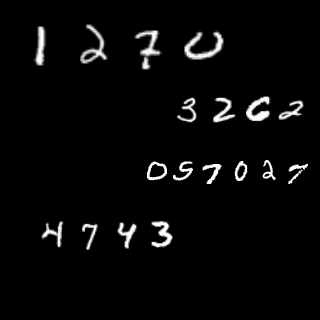 1270
3262
057027
4743